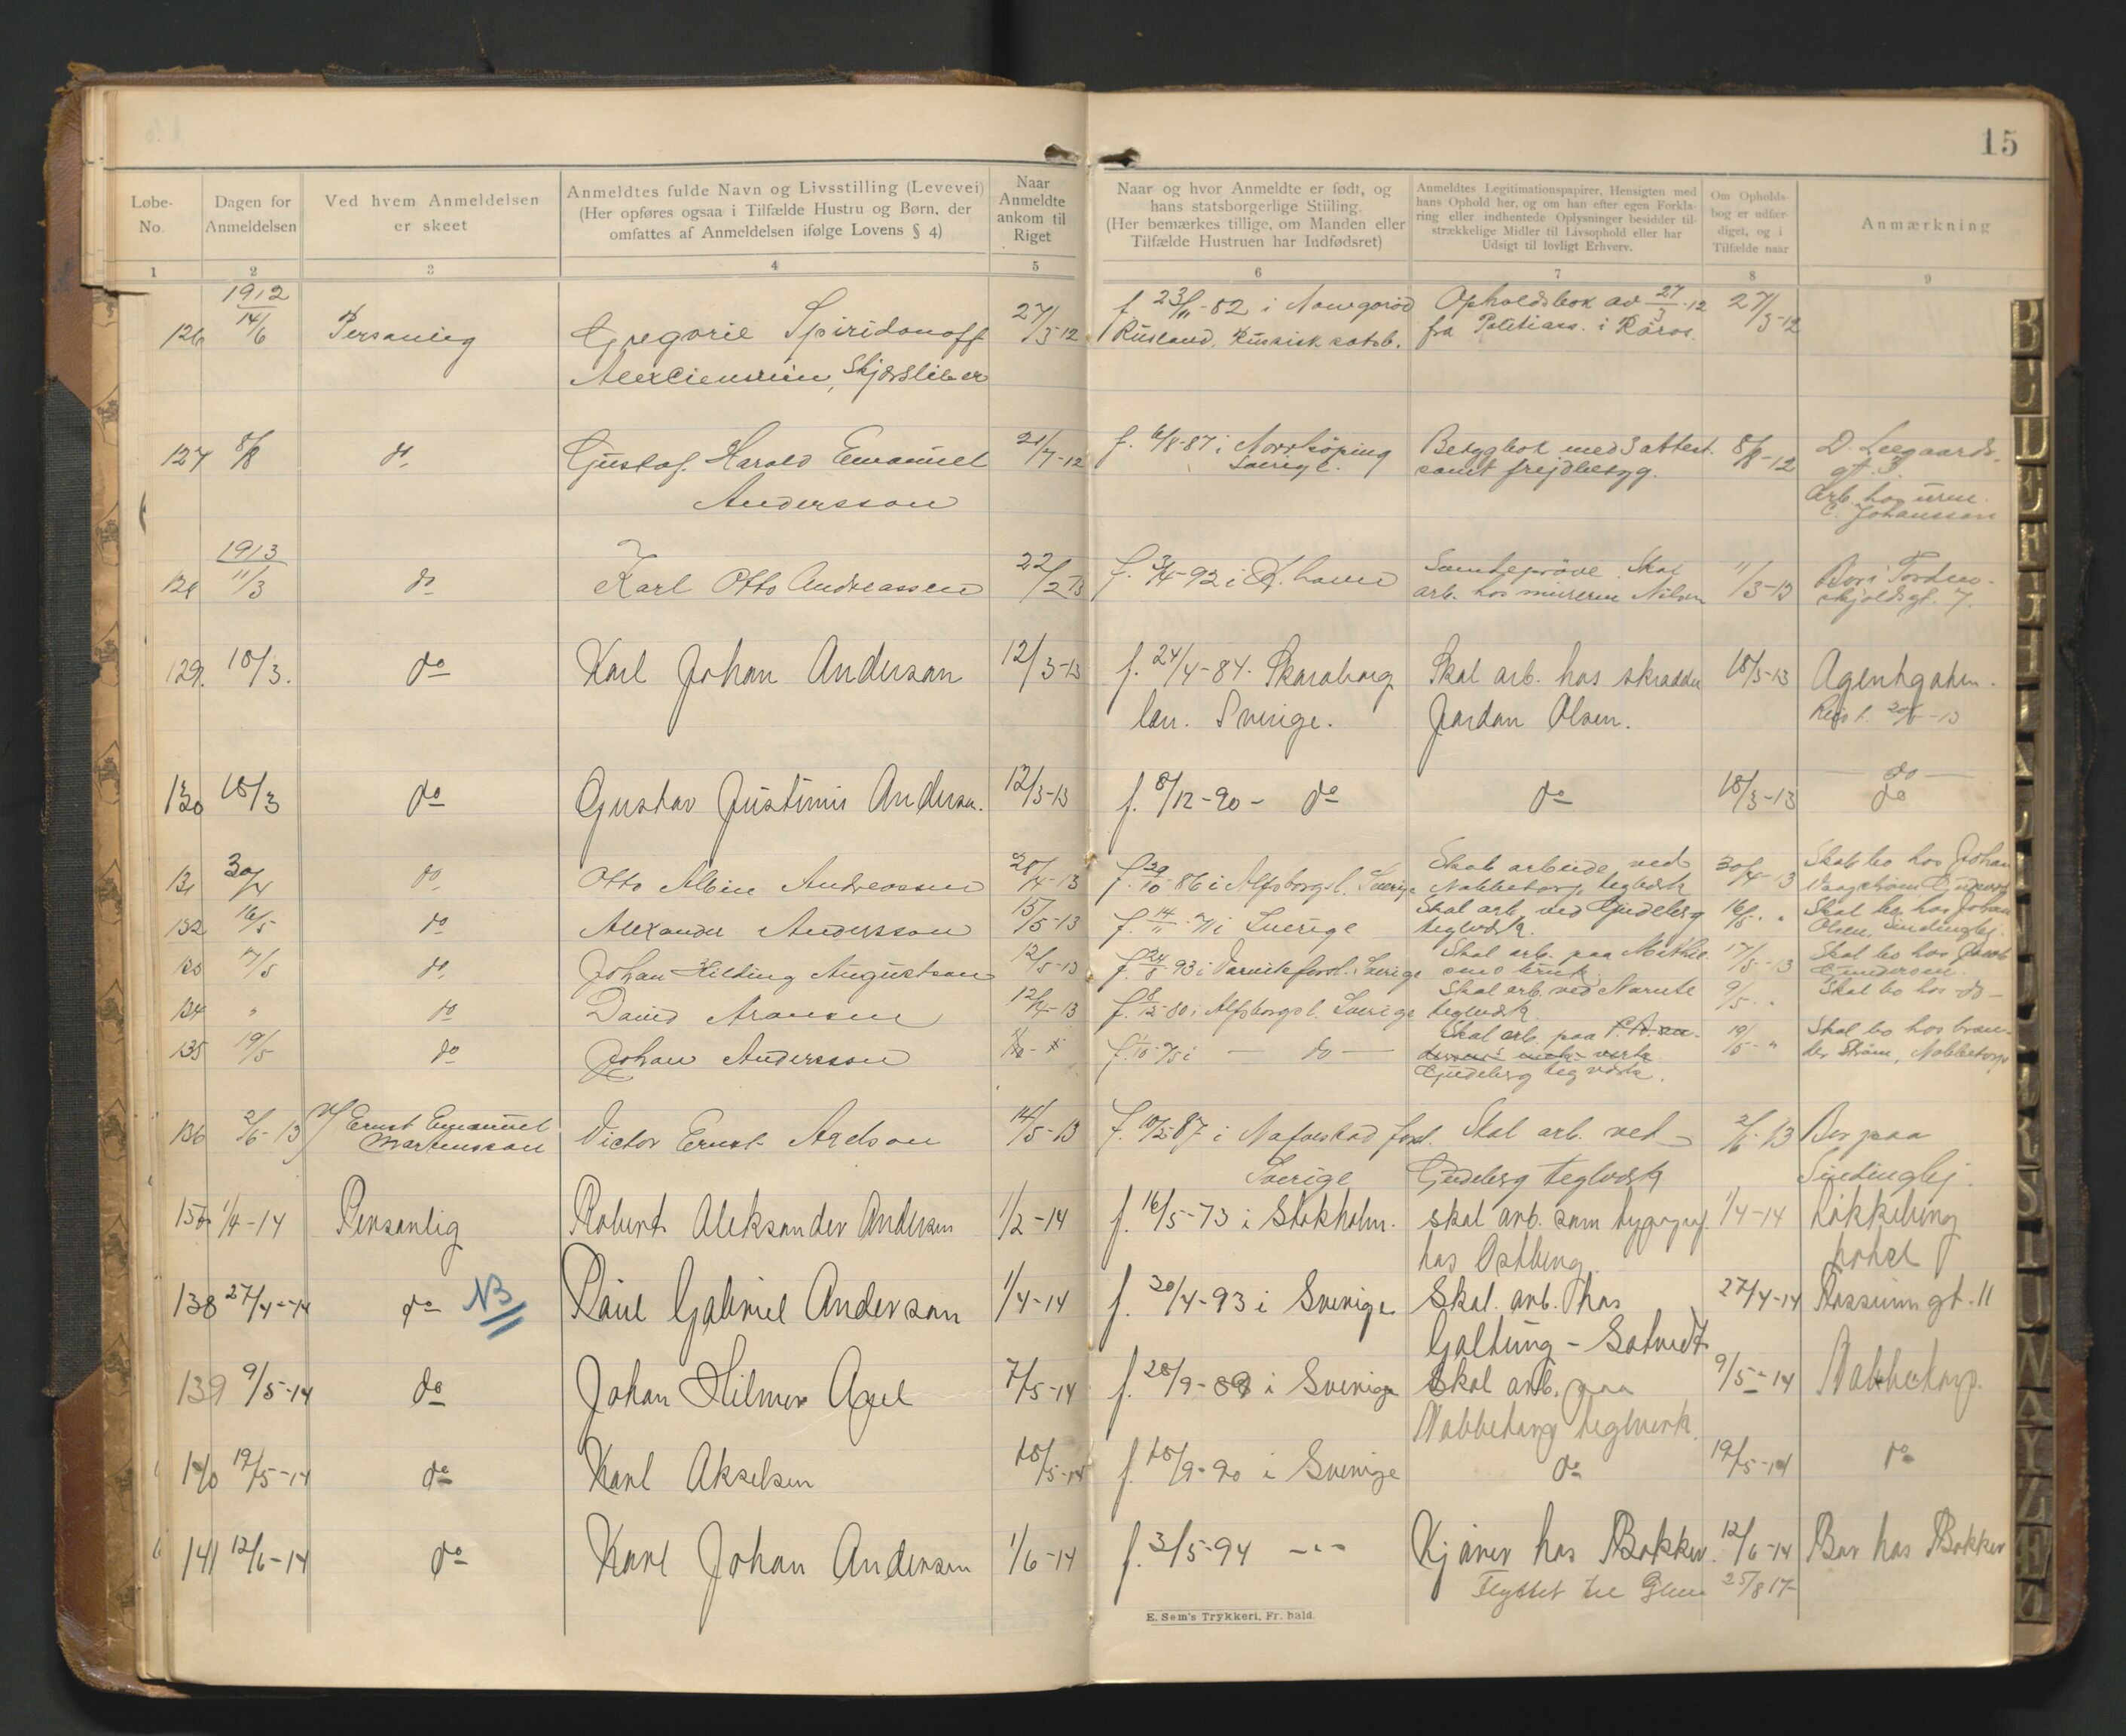 15
Løbe-
No.
Dagen for
Anmeldelsen
Ved hvem Anmeldelsen
er skeet
Anmeldtes fulde Navn og Livsstilling (Levevei)
(Her opføres ogsaa i Tilfælde Hustru og Børn, der
omfattes af Anmeldelsen ifølge Lovens § 4)
Naar
Anmeldte
ankom til
Riget
Naar og hvor Anmeldte er født, og
hans statsborgerlige Stiiling.
(Her bemærkes tillige, om Manden eller
Tilfælde Hustruen har Indfødsret)
Anmeldtes Legitimationspapirer, Hensigten med
hans Ophold her, og om han efter egen Forkla-
ring eller indhentede Oplysninger besidder til-
strækkelige Midler til Livsophold eller har
Udsigt til lovligt Erhverv.
Om Opholds-
bog er udfær-
diget, og i
Tilfælde naar
Anmærkning
1 2 3 4 5 6 7 8 9
1912
126 14/6 Personlig Gregorie Spiridonoff 27/3-12 f. 23/11-82 i Nowgorod Opholdsbok av 27/3-12 27/3-12
Skjærsliber Rusland, Russisk statsb. fra Politims. i Röros.
127 8/8 do Gustaf Harald Emanuel 21/7-12 f. 6/8-87 i Norrköping Betygbok med 3 attest. 8/8-12 D. Leegaards-
Andersson Sverige. samt frejdbetyg. gt. 3.
Arb. hos urm.
C. Johansson
1913
128 11/3 do Karl Otto Andreassen 22/2 13 f. 3/4-92 i K.havn Svendeprøve. Skal 11/3-13 Bor i Torden-
arb. hos murerm Nilsen skjoldsgt. 7.
129. 18/3. do Karl Johan Anderson 12/3-13 f. 24/4-84. Skaraborg Skal arb. hos skrædder 18/3-13 Agentgaten.
län. Sverige. Jordan Olsen. Reist 20/5-13
130 18/3 do Gustav Justinus Anderson. 12/3-13 f. 8/12-90 - do do 18/3-13 do
do
131 30/4 do Otto Albin Andreassen 28/4-13 f. 29/10-86 i Alfsborgs l. Sverige Skal arbeide ved 30/4-13 Skal bo hos Johan
Nabbetorp teglværk
132 16/5 do Alexander Andersson 15/5-13 f. 14/11-71 i Sverige Skal arb. ved Gudeberg 16/5 " Skal bo hos Johan
teglværk. Olsen, Sindinglej.
133 17/5 do Johan Hilding Augustson 12/5-13 f. 24/8-93 i Sverige Skal arb. paa Mathie- 17/5-13 Skal bo hos Jacob
sens bruk. Gundersen.
134 " do David Aronsen 12/4-13 f. 8/12-80 i Alfsborgs l. Sverige Skal arb. ved Narnte 9/5 " Skal bo hos - do -
teglværk.
135 19/5 do Johan Andersson f. 1/10-75 i - do - Skal arb. paa 19/5 - " Skal bo hos bræn-
Gudeberg teglværk. der Strøm, Nabbetorp
136 2/6-13 v/ Ernst Emanuel Victor Ernst Axelson 14/5-13 f. 19/5-87 i Skal arb. ved 2/6-13 Bor paa
Martensson Sverige Gudeberg teglværk Sindinglej.
1/4-14 Personlig Robert Aleksander Andersen 1/2-14 f. 16/5-73 i Stokholm. skal arb. som typograf 1/4-14 Kokkebing
hos Østberg. hotel
138 27/4-14 do NB Paul Gabriel Anderson 1/4-14 f. 30/4-93 i Sverige Skal. arb. hos 27/4-14 gt. 11
Galtung -
139 9/5-14 do Johan Hilmer Axel 7/5-14 f. 28/9-88 i Sverige Skal arb. paa 9/5-14 Nabbetorp.
Nabbetorp teglverk.
140 19/5-14 do Karl Akselsen 18/5-14 f. 18/9-90 i Sverige do 19/5-14 do
141 12/6-14 do Karl Johan Andersen 1/6-14 f. 3/5-94 - " - Kjører hos Bakker. 12/6-14 Bor hos Bakker
Flyttet til Glem 25/8 17-
E. Sem's Trykkeri, Fr. hald.